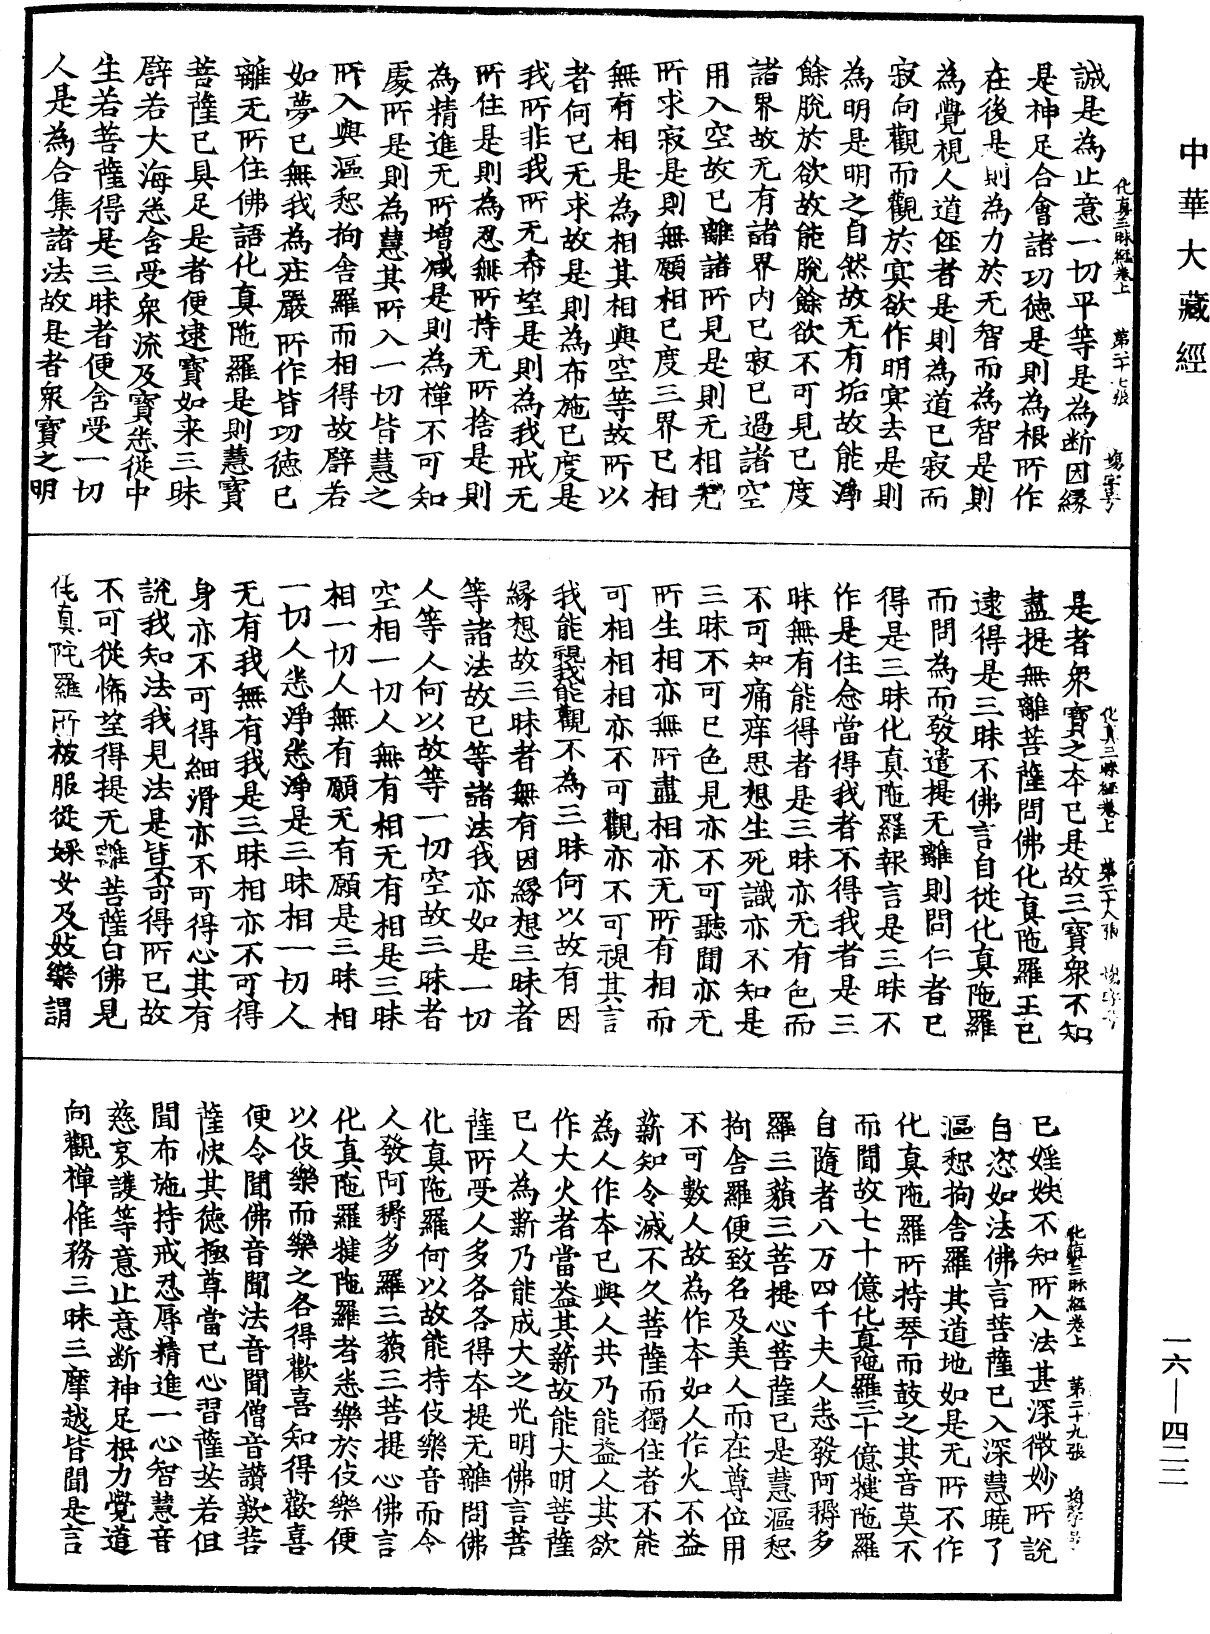 中華大藏經
一六—四二二
化真三昧經卷上　第二十七張
誠是為止意一切平等是為断因緣
是神足合會諸功德是則為根所作
在後是則為力於无智而為智是則
為覺視人道径者是則為道已寂而
寂向觀而觀於㝠欲作明㝠去是則
為明是明之自然故无有垢故能淨
餘脫於欲故能脫餘欲不可見已度
諸界故无有諸界內已寂已過諸空
用入空故已離諸所見是則无相无
所求寂是則無願相已度三界已相
無有相是為相其相與空等故所以
者何已无求故是則為布施已度是
我所非我所无希望是則為我戒无
所住是則為忍無所持无所捨是則
為精進无所増減是則為禪不可知
處所是則為慧其所入一切皆慧之
所入與漚惒拘舍羅而相得故辟若
如夢已無我為莊嚴所作皆功德已
離无所住佛語化真陁羅是則慧寶
菩薩已具足是者便逮寶如来三昧
辟若大海悉含受衆流及寶悉從中
生若菩薩得是三昧者便含受一切
人是為合集諸法故是者衆寶之明
化真三昧經卷上　第二十八張
是者衆寶之本已是故三寶衆不知
盡提無離菩薩問佛化真陁羅王已
逮得是三昧不佛言自從化真陁羅
而問為而發遣提无離則問仁者已
得是三昧化真陁羅報言是三昧不
作是住念當得我者不得我者是三
昧無有能得者是三昧亦无有色而
不可知痛痒思想生死識亦不知是
三昧不可已色見亦不可聽聞亦无
所生相亦無所盡相亦无所有相而
可相相相亦不可觀亦不可視其言
我能視我能觀不為三昧何以故有因
緣想故三昧者無有因緣想三昧者
等諸法故已等諸法我亦如是一切
人等人何以故等一切空故三昧者
空相一切人無有相无有相是三昧
相一切人無有願无有願是三昧相
一切人悉淨悉淨是三昧相一切人
无有我無有我是三昧相亦不可得
身亦不可得細滑亦不可得心其有
說我知法我見法是皆不可得所已故
不可從悕望得提无離菩薩白佛見
化真陀羅所被服從婇女及妓樂謂
化真三昧經卷上　第二十九張
已婬妷不知所入法甚深微妙所說
自恣如法佛言菩薩已入深慧曉了
漚惒拘舍羅其道地如是无所不作
化真陁羅所持琴而鼓之其音莫不
而聞故七十億化真陁羅三十億揵陁羅
自隨者八万四千夫人悉發阿耨多
羅三藐三菩提心菩薩已是慧漚惒
拘舍羅便致名及美人而在尊位用
不可數人故為作本如人作火不益
薪知令滅不久菩薩而獨住者不能
為人作本已與人共乃能益人其欲
作大火者當益其薪故能大明菩薩
已人為薪乃能成大之光明佛言菩
薩所受人多各各得本提无離問佛
化真陁羅何以故能持伎樂音而令
人發阿耨多羅三藐三菩提心佛言
化真陁羅揵陁羅者悉樂於伎樂便
以伎樂而樂之各得歡喜知得歡喜
便令聞佛音聞法音聞僧音讚歎菩
薩快其德極尊當已心習薩芸若但
聞布施持戒忍辱精進一心智慧音
慈哀護等意止意断神足根力覺道
向觀禪惟務三昧三摩越皆聞是言